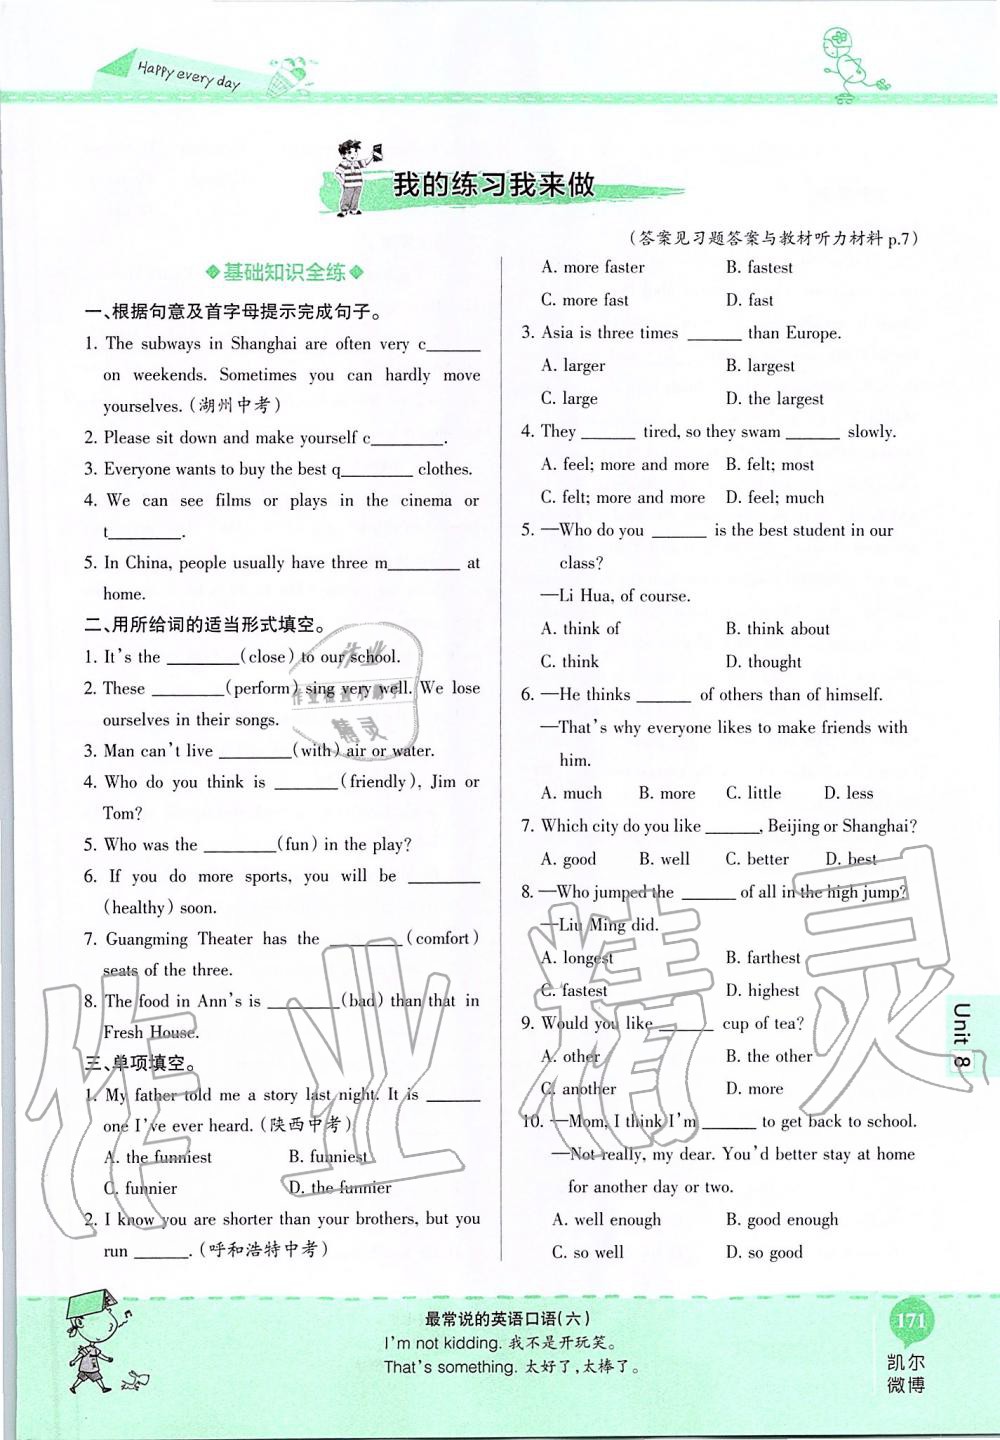 Happy every day
我的练习我来做
(答案见习题答案与教材听力材料 p.7)
◆基础知识全练◆
一、根据句意及首字母提示完成句子。
1. The subways in Shanghai are often very c______
on weekends. Sometimes you can hardly move
yourselves. (湖州中考)
2. Please sit down and make yourself c________.
3. Everyone wants to buy the best q________ clothes.
4. We can see films or plays in the cinema or
t________.
5. In China, people usually have three m________ at
home.
二、用所给词的适当形式填空。
1. It's the ________(close) to our school.
2. These ________(perform) sing very well. We lose
ourselves in their songs.
3. Man can't live ________(with) air or water.
4. Who do you think is _______(friendly), Jim or
Tom?
5. Who was the ________(fun) in the play?
6. If you do more sports, you will be ________
(healthy) soon.
7. Guangming Theater has the ________(comfort)
seats of the three.
8. The food in Ann's is ________(bad) than that in
Fresh House.
三、单项填空。
1. My father told me a story last night. It is ______
one I've ever heard. (陕西中考)
A. the funniest B. funniest
C. funnier D. the funnier
2. I know you are shorter than your brothers, but you
run ______. (呼和浩特中考)
A. more faster B. fastest
C. more fast D. fast
3. Asia is three times ______ than Europe.
A. larger B. largest
C. large D. the largest
4. They ______ tired, so they swam ______ slowly.
A. feel; more and more B. felt; most
C. felt; more and more D. feel; much
5. —Who do you ______ is the best student in our
class?
—Li Hua, of course.
A. think of B. think about
C. think D. thought
6. —He thinks ______ of others than of himself.
—That's why everyone likes to make friends with
him.
A. much B. more C. little D. less
7. Which city do you like ______, Beijing or Shanghai?
A. good B. well C. better D. best
8. —Who jumped the ______ of all in the high jump?
—Liu Ming did.
A. longest B. farthest
C. fastest D. highest
9. Would you like ______ cup of tea?
A. other B. the other
C. another D. more
10. —Mom, I think I'm ______ to get back to school.
—Not really, my dear. You'd better stay at home
for another day or two.
A. well enough B. good enough
C. so well D. so good
Unit 8
作业
作业检查小助手
精灵
作业精灵
最常说的英语口语(六)
I'm not kidding. 我不是开玩笑。
That's something. 太好了,太棒了。
171
凯尔
微博